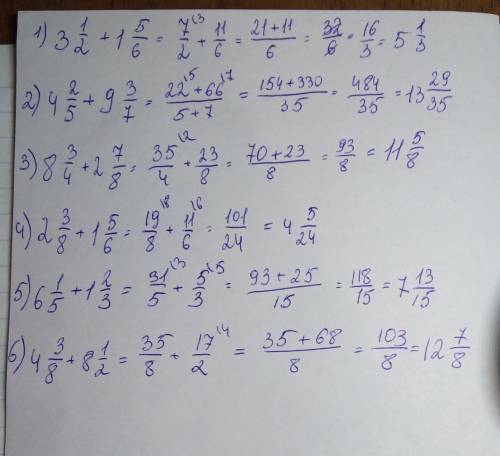 1) 3 1/2 + 1 5/6 = 7/2 \3 + 11/6 = 21+11/6 = 32/6 = 16/3 = 5 1/3
2) 4 2/5 + 9 3/7 = 22\5 + 66\7 / 5+7 = 154+330/35 = 484/35 = 13 29/35
3) 8 3/4 + 2 7/8 = 35/4 \2 + 23/8 = 70+23/8 = 93/8 = 11 5/8
4) 2 3/8 + 1 5/6 = 19/8 \8 + 11/6 \6 = 101/24 = 4 5/24
5) 6 1/5 + 1 2/3 = 31/5 \3 + 5/3 \5 = 93+25/15 = 118/15 = 7 13/15
6) 4 3/8 + 8 1/2 = 35/8 + 17/2 \4 = 35+68/8 = 103/8 = 12 7/8